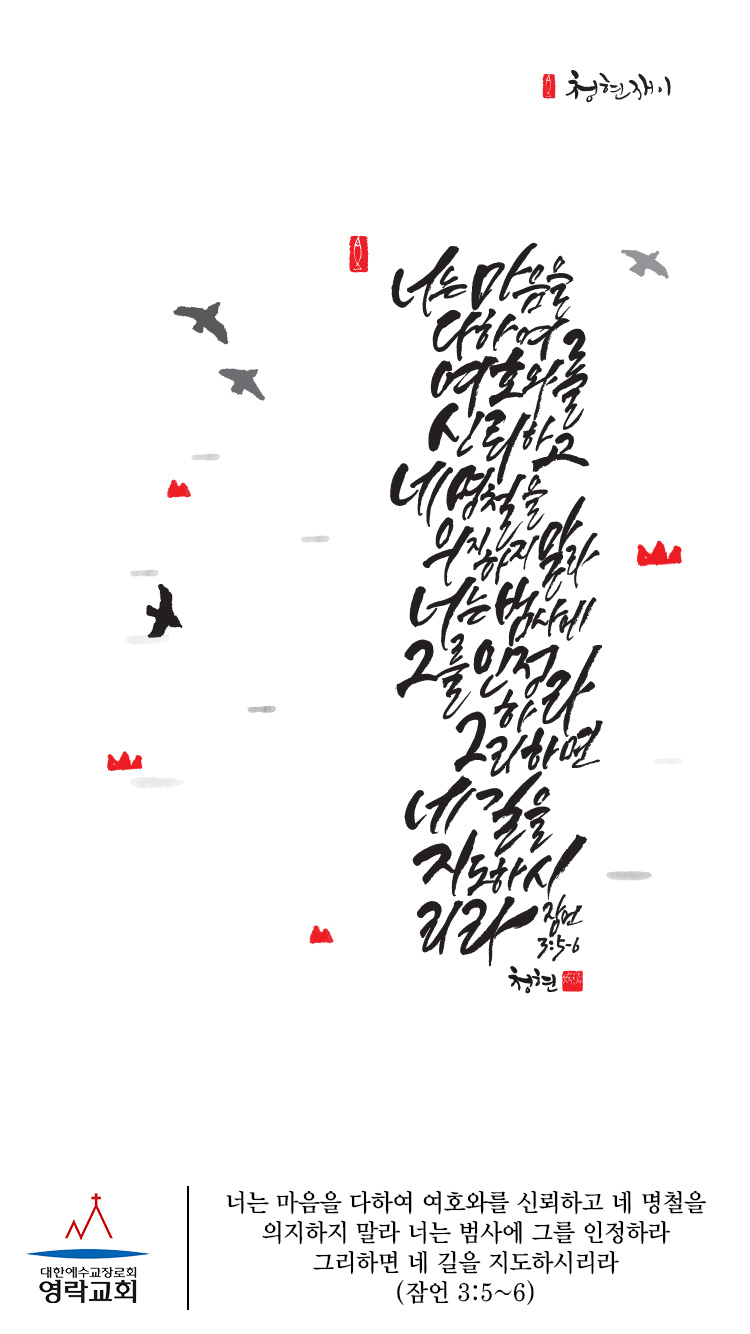 청현재이
너는 마음을
다하여
여호와를
신뢰하고
네 명철을
의지하지 말라
너는 범사에
그를 인정
하라
그리하면
네 길을
지도하시
리라
잠언
3:5-6
청현
대한예수교장로회
영락교회
너는 마음을 다하여 여호와를 신뢰하고 네 명철을
의지하지 말라 너는 범사에 그를 인정하라
그리하면 네 길을 지도하시리라
(잠언 3:5~6)